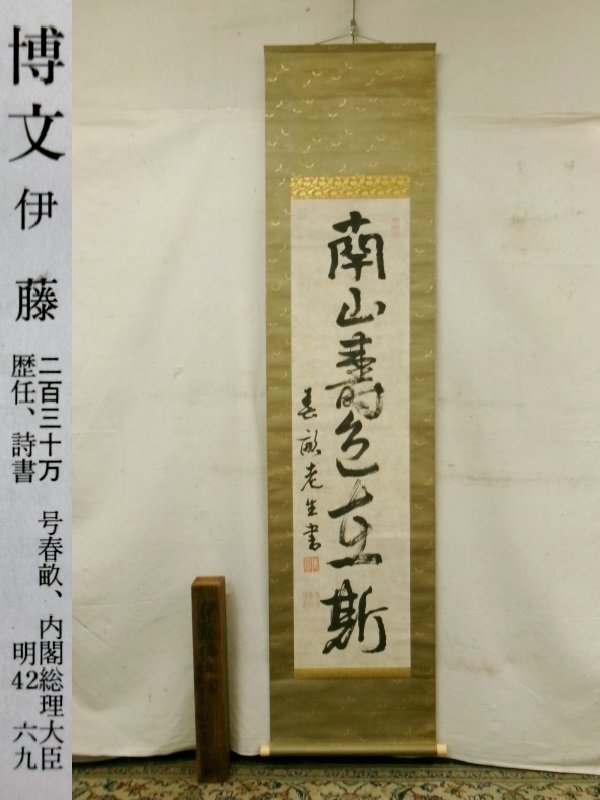 南山壽色在斯
春畝老生書
博文
伊藤
二百三十万 号春畝、内閣総理大臣
歴任、詩書 明42 六九